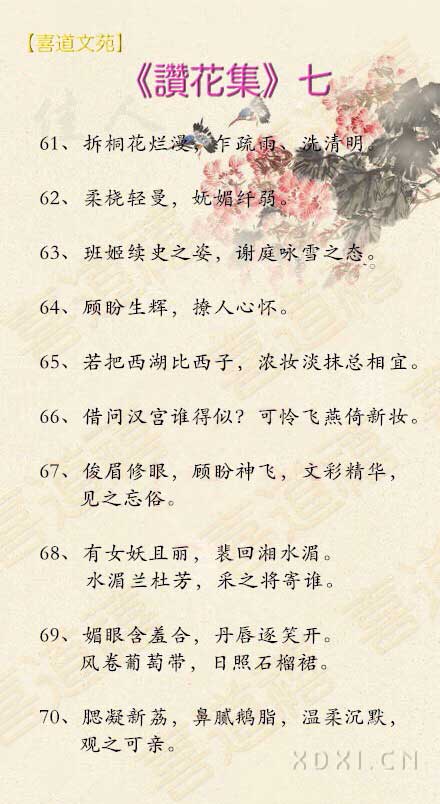 【喜道文苑】
《讚花集》七
佳人
61、拆桐花烂漫，乍疏雨、洗清明。
62、柔桡轻曼，妩媚纤弱。
63、班姬续史之姿，谢庭咏雪之态。
64、顾盼生辉，撩人心怀。
65、若把西湖比西子，浓妆淡抹总相宜。
66、借问汉宫谁得似？可怜飞燕倚新妆。
67、俊眉修眼，顾盼神飞，文彩精华，
见之忘俗。
68、有女妖且丽，裴回湘水湄。
水湄兰杜芳，采之将寄谁。
69、媚眼含羞合，丹唇逐笑开。
风卷葡萄带，日照石榴裙。
70、腮凝新荔，鼻腻鹅脂，温柔沉默，
观之可亲。
XDXI.CN